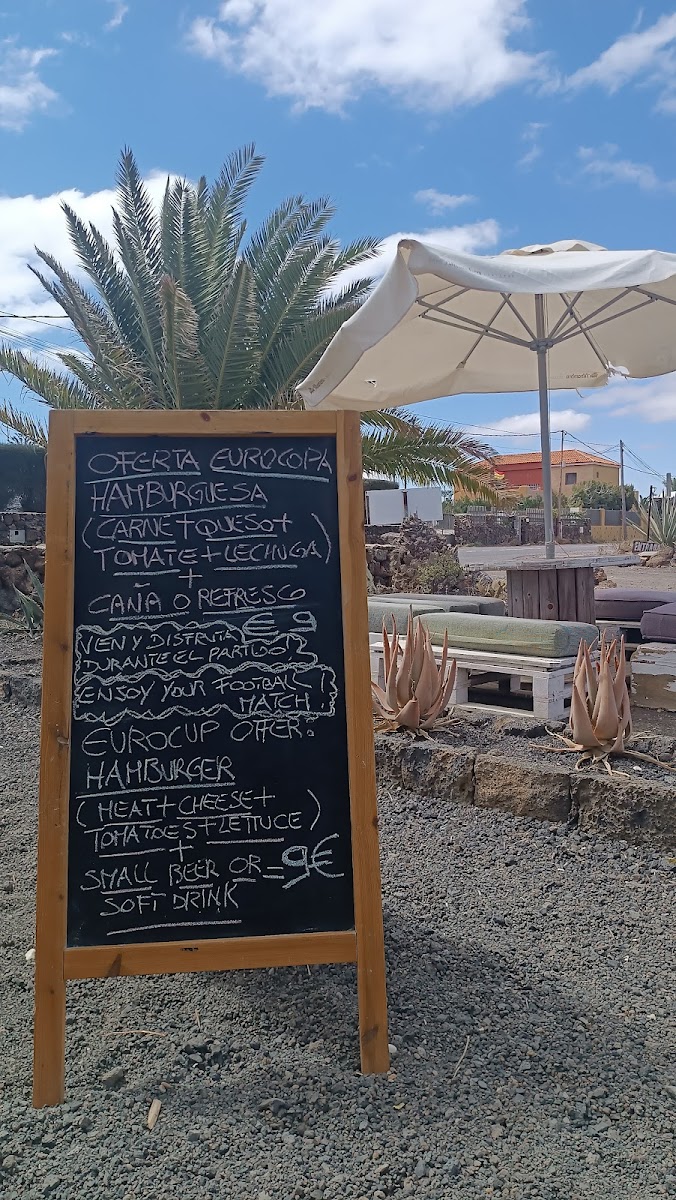 OFERTA EUROCOPA
HAMBURGUESA
(CARNE+QUESO+
TOMATE+LECHUGA)
+
CAÑA O REFRESCO
€ 9
VEN Y DISFRUTA
DURANTE EL PARTIDO
ENJOY YOUR FOOTBALL
MATCH!
EUROCUP OFFER:
HAMBURGER
(MEAT+CHEESE+
TOMATOES+LETTUCE)
+
SMALL BEER OR - 9€
SOFT DRINK